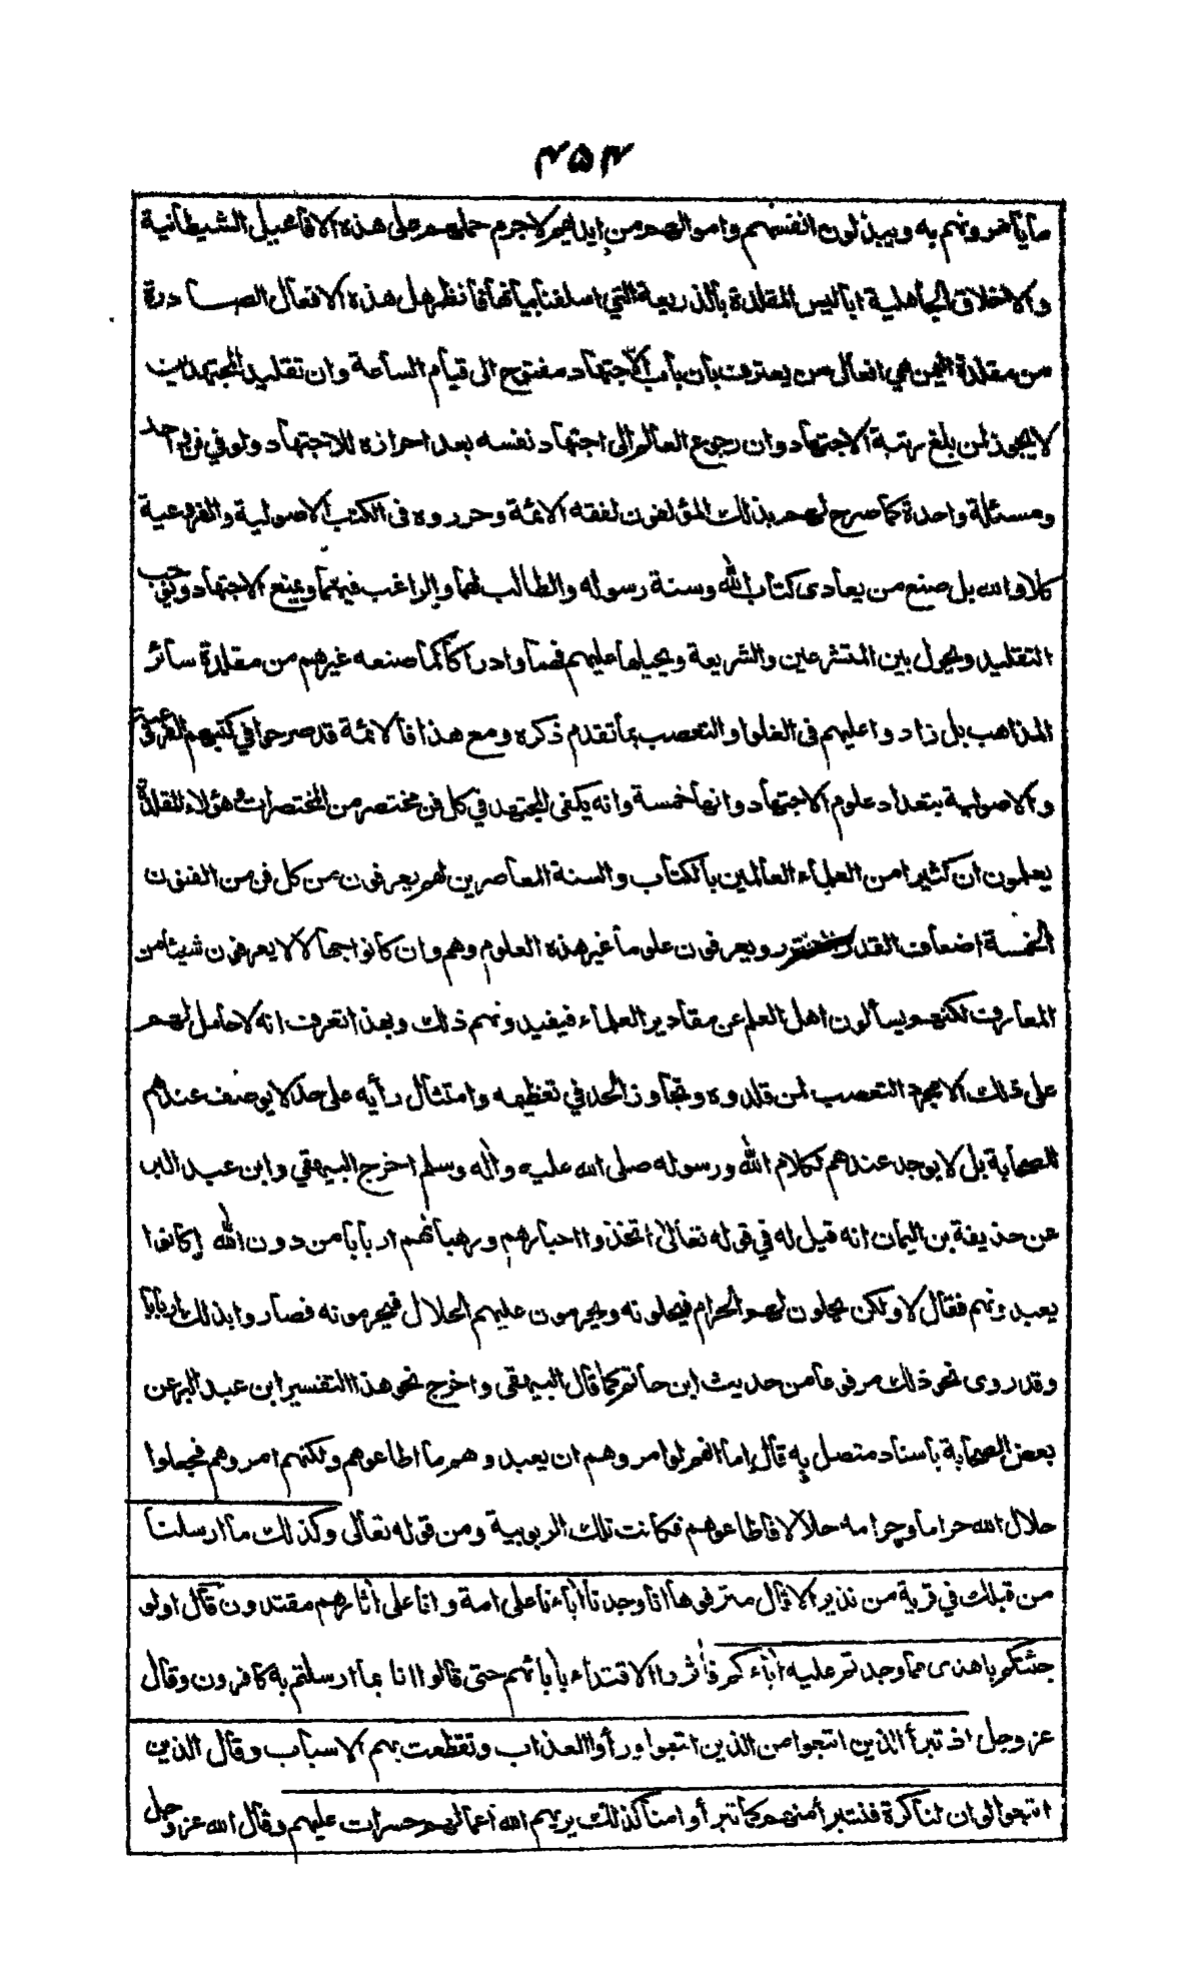 ٤٥٤
ما يأمرونهم به ويبذلون انفسهم واموالهم من ايديهم لا جرم حملهم على هذه الافاعيل الشيطانية
والاخلاق الجاهلية اباليس المقلدة بالذريعة التي اسلفنا بيانها فانظر هل هذه الافعال الصادرة
من مقلدة اليمن هي افعال من يعترف بأن باب الاجتهاد مفتوح الى قيام الساعة وان تقليد المجتهدين
لا يجوز لمن بلغ رتبة الاجتهاد وان رجوع العالم الى اجتهاد نفسه بعد احرازه للاجتهاد ولو في فن واحد
ومسئلة واحدة كما صرح لهم بذلك المؤلفون لفقه الائمة وحرروه فى الكتب الاصولية والفروعية
كلا والله بل صنع من يعادى كتاب الله وسنة رسوله والطالب لهما والراغب فيهما ويمنع الاجتهاد ويوجب
التقليد ويحول بين المتشرعين والشريعة ويحيلها عليهم فهما وادراكا كما صنعه غيرهم من مقلدة سائر
المذاهب بل زادوا عليهم فى الغلو والتعصب بما تقدم ذكره ومع هذا فالائمة قد صرحوا في كتبهم الفروعية
والاصولية بتعداد علوم الاجتهاد وانها خمسة وانه يكفى المجتهد في كل فن مختصر من المختصرات وهؤلاء المقلدة
يعلمون ان كثيرا من العلماء العاملين بالكتاب والسنة المعاصرين لهم يعرفون من كل فن من الفنون
الخمسة اضعاف القدر ويعرفون علوما غير هذه العلوم وهم وان كانوا جهالا لا يعرفون شيئا من
المعارف لكنهم يسألون اهل العلم عن مقادير العلماء فيفيدونهم ذلك وبهذا تعرف انه لا حامل لهم
على ذلك الا مجرد التعصب لمن قلدوه وتجاوز الحد في تعظيمه وامتثال رأيه على حد لا يوصف عندهم
للصحابة بل لا يوجد عندهم لكلام الله ورسوله صلى الله عليه واله وسلم اخرج البيهقي وابن عبد البر
عن حذيفة بن اليمان انه قيل له في قوله تعالى اتخذوا احبارهم ورهبانهم اربابا من دون الله اكانوا
يعبدونهم فقال لا ولكن يحلون لهم الحرام فيحلونه ويحرمون عليهم الحلال فيحرمونه فصاروا بذلك اربابا
وقد روى نحو ذلك مرفوعا من حديث ابن حاتم كما قال البيهقى واخرج نحو هذا التفسير ابن عبد البر عن
بعض الصحابة باسناد متصل به قال اما انهم لو امروهم ان يعبدوهم ما اطاعوهم ولكنهم امروهم فجعلوا
حلال الله حراما وحرامه حلالا فاطاعوهم فكانت تلك الربوبية ومن قوله تعالى وكذلك ما ارسلنا
من قبلك في قرية من نذير الا قال مترفوها انا وجدنا أباءنا على امة وانا على أثارهم مقتدون قال اولو
جئتكم باهدى مما وجدتم عليه أباءكم فأثروا الاقتداء بابائهم حتى قالوا انا بما ارسلتم به كافرون وقال
عز وجل اذ تبرأ الذين اتبعوا من الذين اتبعوا ورأوا العذاب وتقطعت بهم الاسباب وقال الذين
اتبعوا لو ان لنا كرة فنتبرأ منهم كما تبرأوا منا كذلك يريهم الله اعمالهم حسرات عليهم وقال الله عز وجل